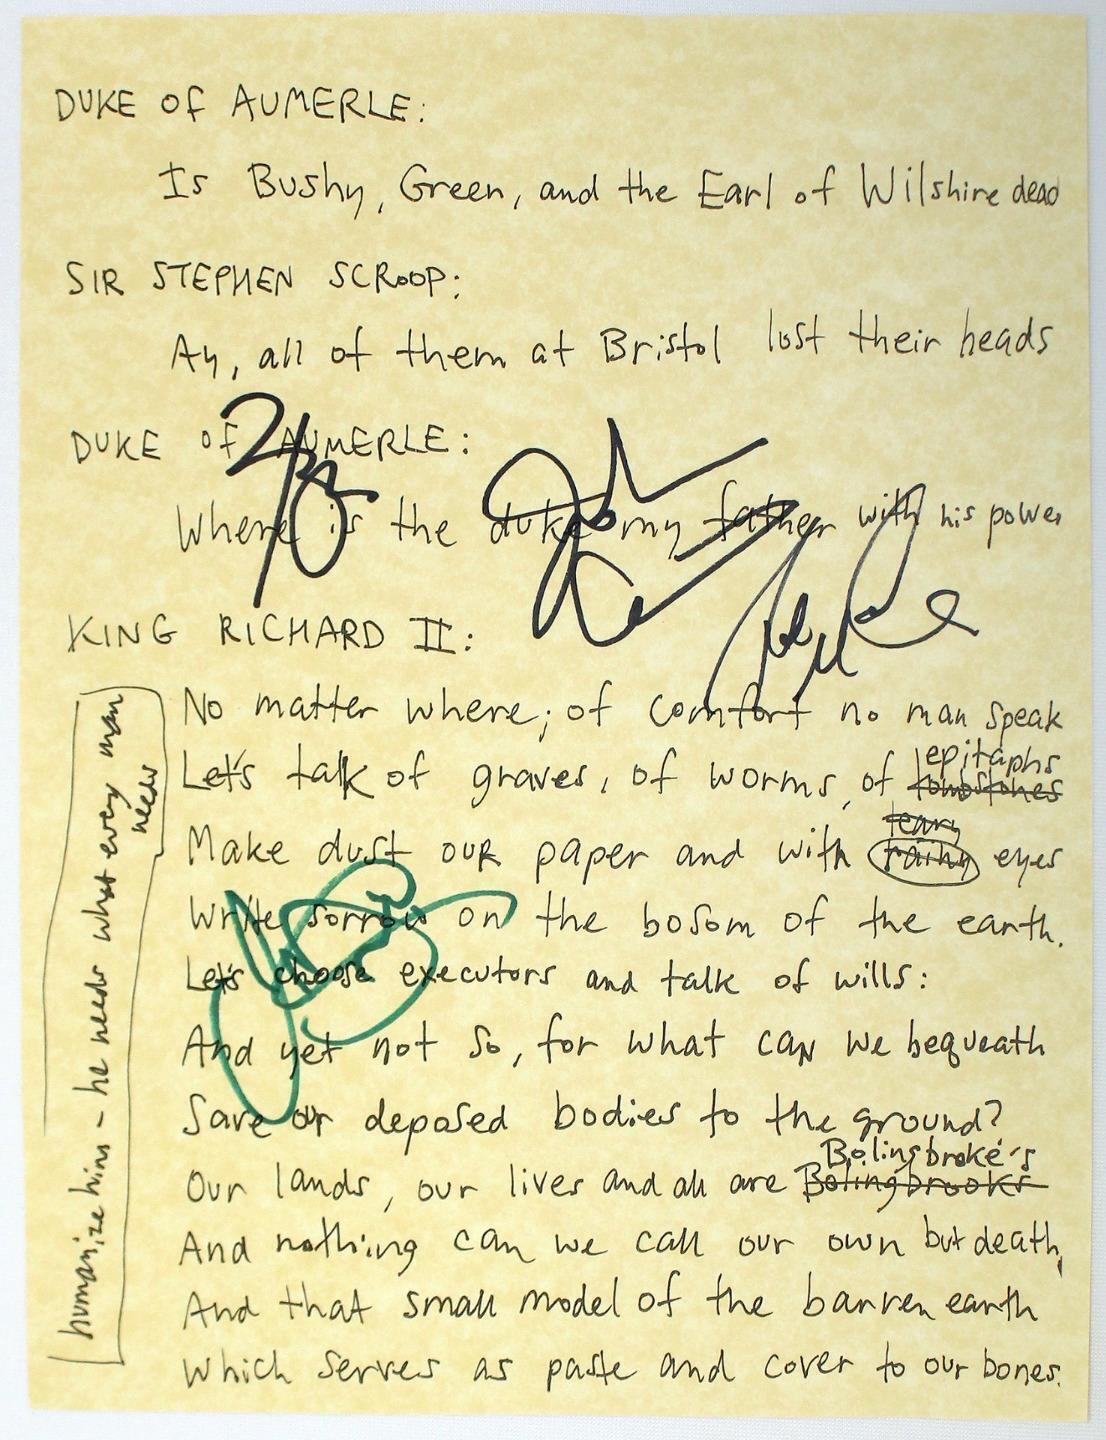 DUKE OF AUMERLE:
Is Bushy, Green, and the Earl of Wilshire dead
SIR STEPHEN SCROOP:
Ay, all of them at Bristol lost their heads
DUKE OF AUMERLE:
Where is the duke my father with his power
KING RICHARD II:
No matter where; of comfort no man speak
Let's talk of graves, of worms, of tombstones epitaphs
Make dust our paper and with teary rainy eyes
Write sorrow on the bosom of the earth.
Let's choose executors and talk of wills:
And yet not so, for what can we bequeath
Save our deposed bodies to the ground?
Our lands, our lives and all are Bolingbrooks Bolingbroke's
And nothing can we call our own but death,
And that small model of the barren earth
Which serves as paste and cover to our bones.
humanize him - he needs what every man
needs